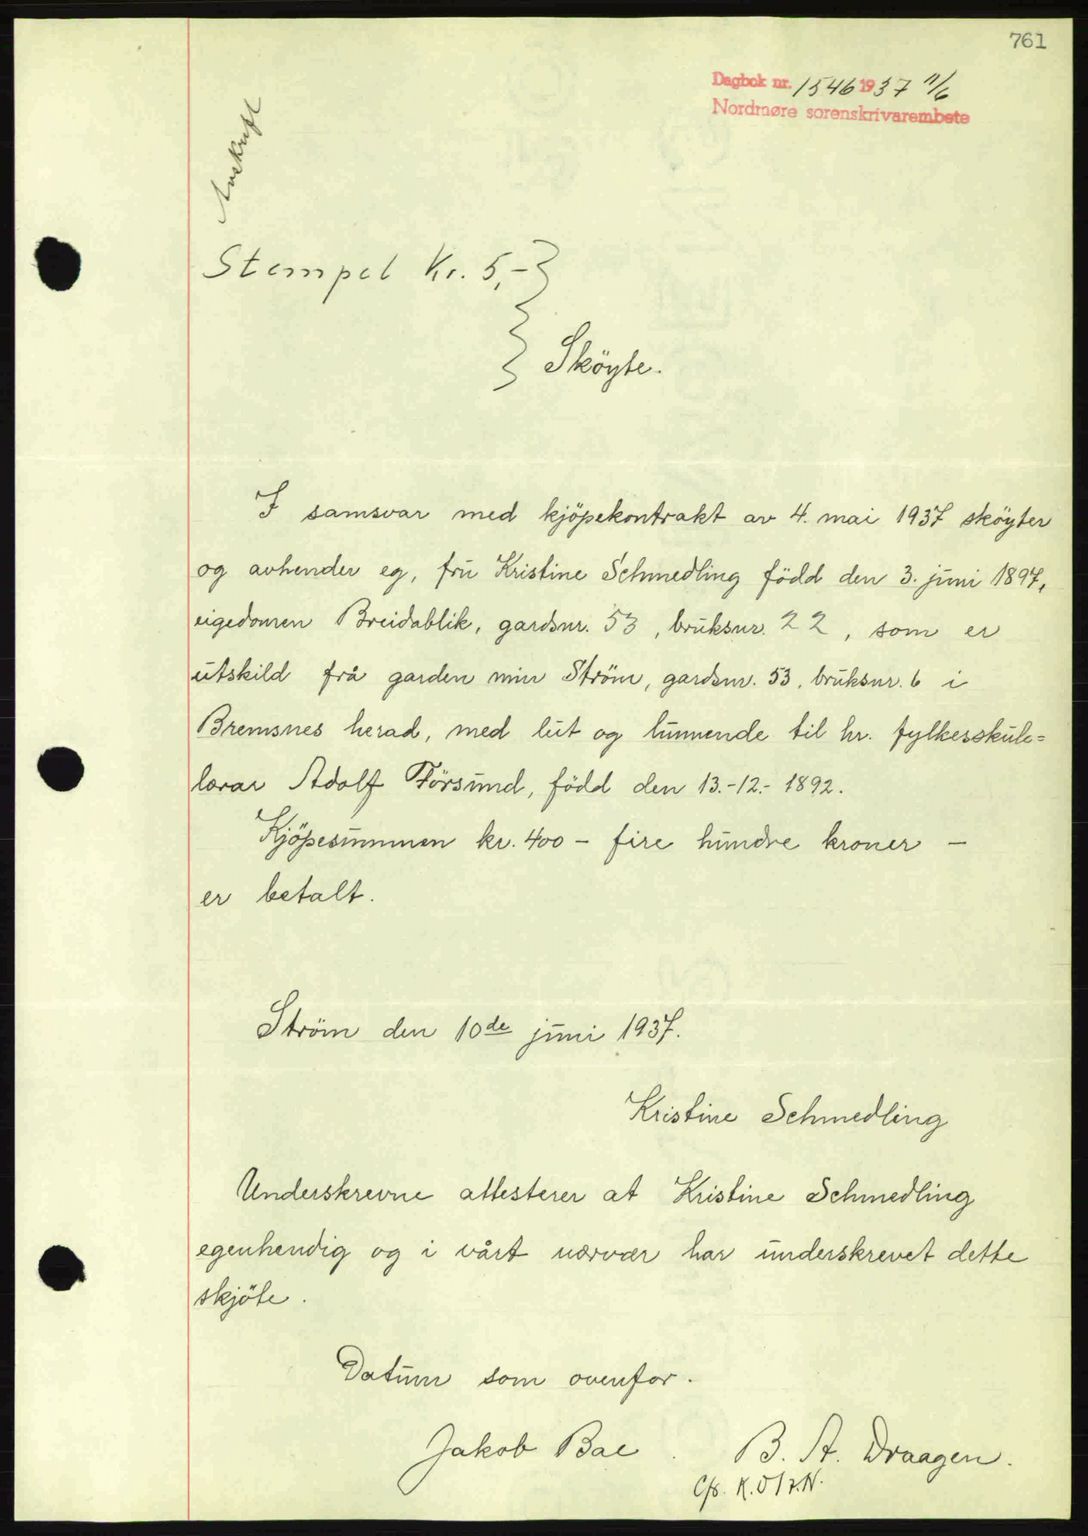 761
Dagbok nr. 1546 1937 11/6
Nordmøre sorenskrivarembete
Avskrift
Stempel Kr. 5,-
Sköyte.
I samsvar med kjöpekontrakt av 4. mai 1937 sköyter
og avhender eg, fru Kristine Schmedling född den 3. juni 1897,
eigedomen Breidablik, gardsnr. 53, bruksnr. 22, som er
utskild frå garden min Ström, gardsnr. 53, bruksnr. 6 i
Bremsnes herad, med lut og lunnende til hr. fylkesskule-
lærar Adolf Försund, född den 13.-12.- 1892.
Kjöpesummen kr. 400 - fire hundre kroner -
er betalt.
Ström den 10de juni 1937.
Kristine Schmedling
Underskrevne attesterer at Kristine Schmedling
egenhendig og i vårt nærvær har underskrevet dette
skjöte.
Datum som ovenfor.
Jakob Bae. B. A. Draagen.